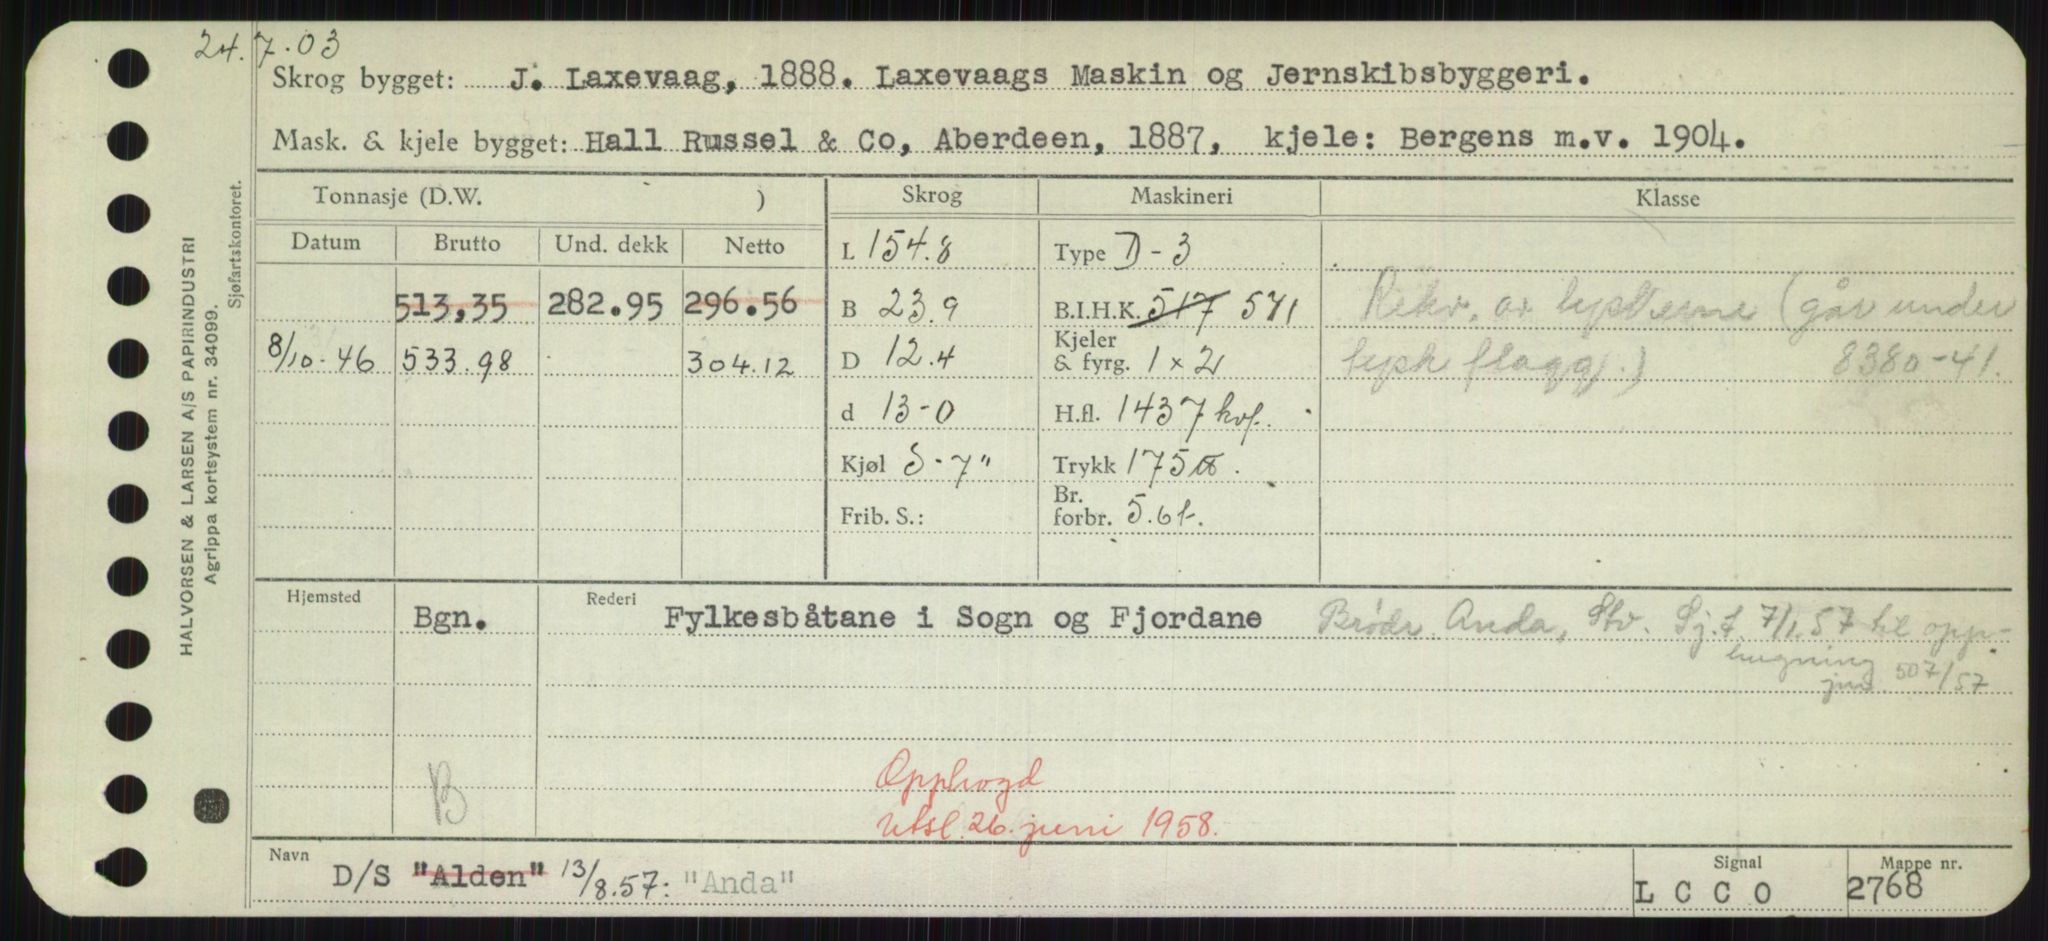 24.7.03
Skrog bygget: J. Laxevaag, 1888. Laxevaags Maskin og Jernskibsbyggeri.
Mask. & kjele bygget: Hall Russel & Co, Aberdeen, 1887, kjele: Bergens m.v. 1904.
Tonnasje (D.W. ) Skrog Maskineri Klasse
Datum Brutto Und. dekk Netto L 154.8 Type D-3
513,35 282.95 296.56 B 23.9 B.I.H.K. 517 571 Rekv. av tyskerne (går under
8/10-46 533.98 304.12 D 12.4 Kjeler & fyrg. 1 x 2 tysk flagg.) 8380-41.
d 13-0 H.fl. 1437 kvf.
Kjøl S-7" Trykk 175 lb.
Frib. S.: Br. forbr. 5.6t.
Hjemsted Bgn. Rederi Fylkesbåtane i Sogn og Fjordane Brødr. Anda, Stv. Sj.f. 7/1.57 til opp-
hugning
jnr. 507/57
B
Opphogd
Utsl. 26. juni 1958.
Navn D/S "Alden" 13/8.57: "Anda" Signal L C C O Mappe nr. 2768
HALVORSEN & LARSEN A/S PAPIRINDUSTRI
Agrippa kortsystem nr. 34099.
Sjøfartskontoret.